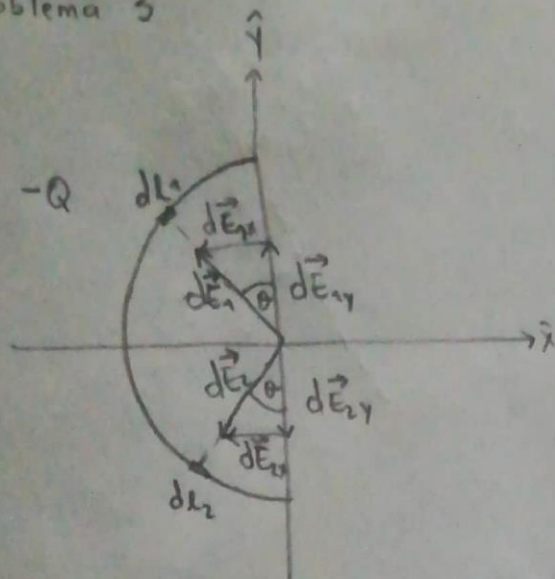 oblema 3
Ŷ
-Q
dL1
dE⃗1x
dE⃗1
θ
dE⃗1y
x̂
dE⃗2
θ
dE⃗2y
dE⃗2x
dL2